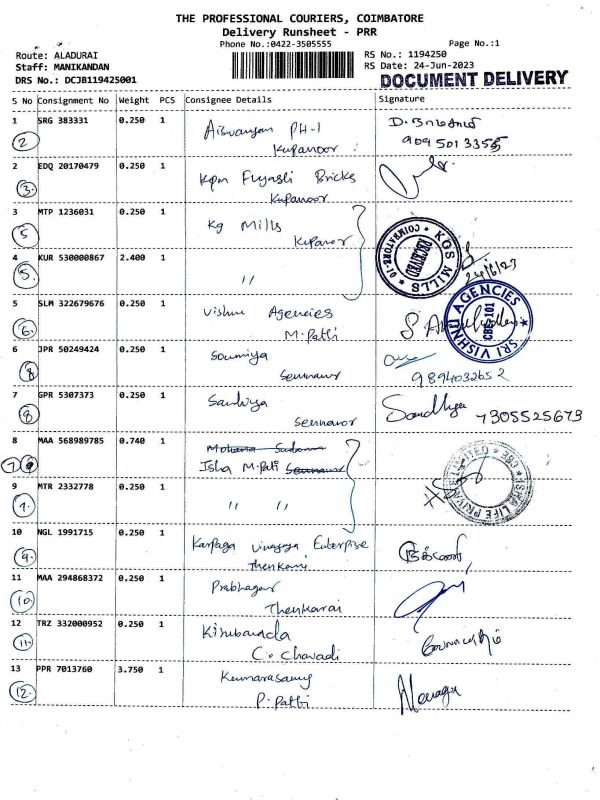 THE PROFESSIONAL COURIERS, COIMBATORE
Delivery Runsheet - PRR
Phone No.:0422-3505555
Page No.:1
Route: ALADURAI
RS No.: 1194250
Staff: MANIKANDAN
RS Date: 24-Jun-2023
DRS No.: DCJB119425001
DOCUMENT DELIVERY
S No Consignment No Weight PCS Consignee Details Signature
1 SRG 383331 0.250 1
PH-1
2
Kupanoor
2 EDQ 20170479 0.250 1 Kpm Flyash Bricks
3
Kupanoor
3 MTP 1236031 0.250 1 Kg Mills
5
Kupanoor
KGS MILLS
RECEIVED
COIMBATORE
4 KUR 530000867 2.400 1 "
5
24/6/23
5 SLM 322679676 0.250 1 Vishnu Agencies
6
M.Patti
SRI VISHNU AGENCIES
CBE-101
6 JPR 50249424 0.250 1 Soumiya
8
Sennanur
9894032652
7 GPR 5307373 0.250 1 Sandhya
Sandhya 7305525673
8
Sennanor
8 MAA 568989785 0.740 1
Isha M.Pati
ISHA LIFE PRIVATE LIMITED
CBE
9 MTR 2332778 0.250 1 " "
7
10 NGL 1991715 0.250 1 Karpaga Vinayaga Enterprise
9
Thenkarai
11 MAA 294868372 0.250 1 Prabhagar
10
Thenkarai
12 TRZ 332000952 0.250 1
11
C. Chavadi
13 PPR 7013760 3.750 1 Kumarasamy
12
P. Patti